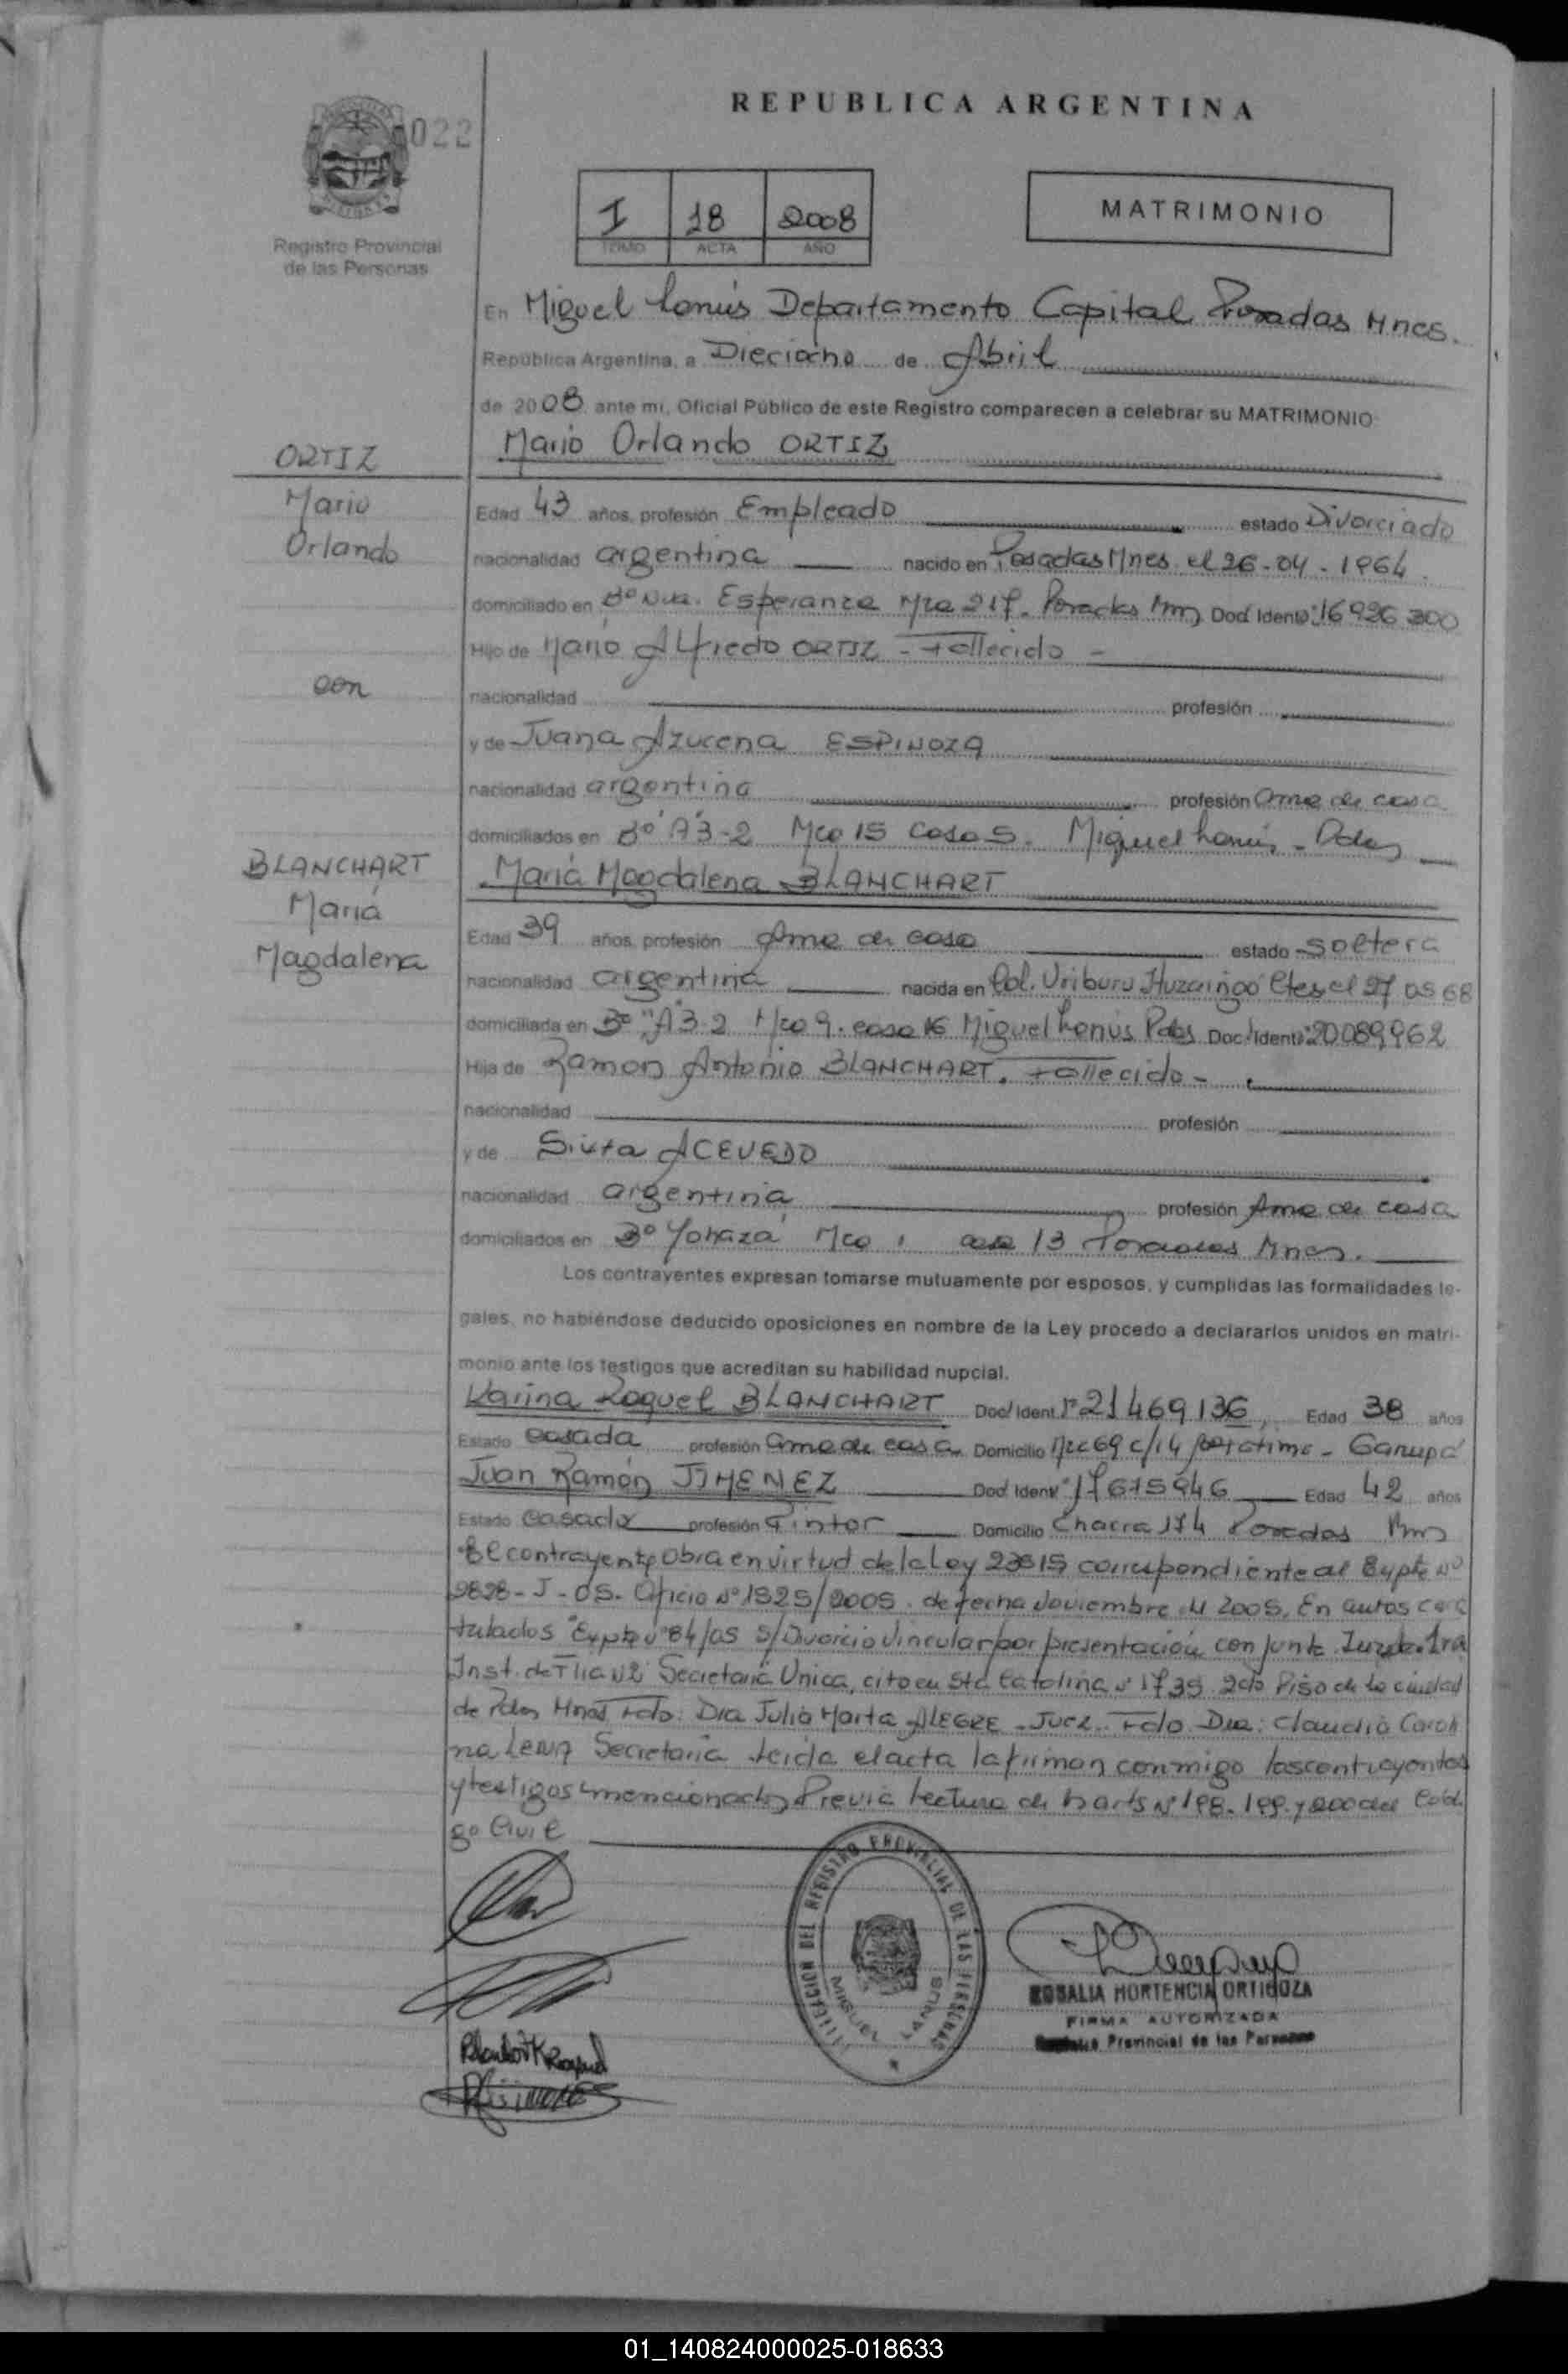 REPUBLICA ARGENTINA
022
Registro Provincial
de las Personas
I 18 2008
TOMO ACTA AÑO
MATRIMONIO
En Miguel Lanús Departamento Capital Posadas Mnes.
República Argentina, a Dieciocho de Abril
de 2008 ante mi, Oficial Público de este Registro comparecen a celebrar su MATRIMONIO
Mario Orlando ORTIZ
ORTIZ
Mario
Orlando
con
BLANCHART
María
Magdalena
Edad 43 años, profesión Empleado estado Divorciado
nacionalidad argentina nacido en Posadas Mnes. el 26-04-1964
domiciliado en Bº Nva. Esperanza Mza 217. Posadas Mnes Doc/ Ident Nº 16926300
Hijo de Mario Alfredo ORTIZ - Fallecido -
nacionalidad profesión
y de Juana Azucena ESPINOZA
nacionalidad argentina profesión Ama de casa
domiciliados en Bº A3-2 Mza 15 Casa 5. Miguel Lanús - Pdas
María Magdalena BLANCHART
Edad 39 años, profesión Ama de casa estado Soltera
nacionalidad argentina nacida en Col. Uriburu Ituzaingó Ctes el 27 05 68
domiciliada en Bº "A3-2 Mza 9. casa 16 Miguel Lanús Pdas Doc/ Ident Nº 20089962
Hija de Ramon Antonio BLANCHART. Fallecido -
nacionalidad profesión
y de Sixta ACEVEDO
nacionalidad argentina profesión Ama de casa
domiciliados en Bº Yohazá Mza 1 casa 13 Posadas Mnes.
Los contrayentes expresan tomarse mutuamente por esposos, y cumplidas las formalidades le-
gales, no habiéndose deducido oposiciones en nombre de la Ley procedo a declararlos unidos en matri-
monio ante los testigos que acreditan su habilidad nupcial.
Karina Raquel BLANCHART Doc/ Ident Nº 21469136, Edad 38 años
Estado casada profesión ama de casa Domicilio Mza 69 c/14 Garupá
Juan Ramón JIMENEZ Doc/ Ident Nº 17675946 Edad 42 años
Estado casado profesión Pintor Domicilio Chacra 174 Posadas Mnes
El contrayente obra en virtud de la Ley 23515 correspondiente al Expte Nº
9828-J-05. Oficio Nº 1525/2005. de fecha Noviembre 2005. En autos cara
tulados "Expte Nº 84/05 S/Divorcio Vincular por presentación conjunta Juzgdo. 1ra
Inst. de Flia Nº2 Secretaría Unica, cito en Sta Catalina Nº 1735 2do Piso de la ciudad
de Pdas Mnes Fdo. Dra Julia Marta ALEGRE - Juez. Fdo. Dra: Claudia Caroli
na LENA Secretaria leida el acta la firman conmigo los contrayentes
y testigos mencionados Previa lectura de los arts Nº 198. 199. y 200 del Códi
go Civil
DELEGACION DEL REGISTRO PROVINCIAL DE LAS PERSONAS
MIGUEL LANUS
ROSALIA HORTENCIA ORTIGOZA
FIRMA AUTORIZADA
Registro Provincial de las Personas
01_140824000025-018633